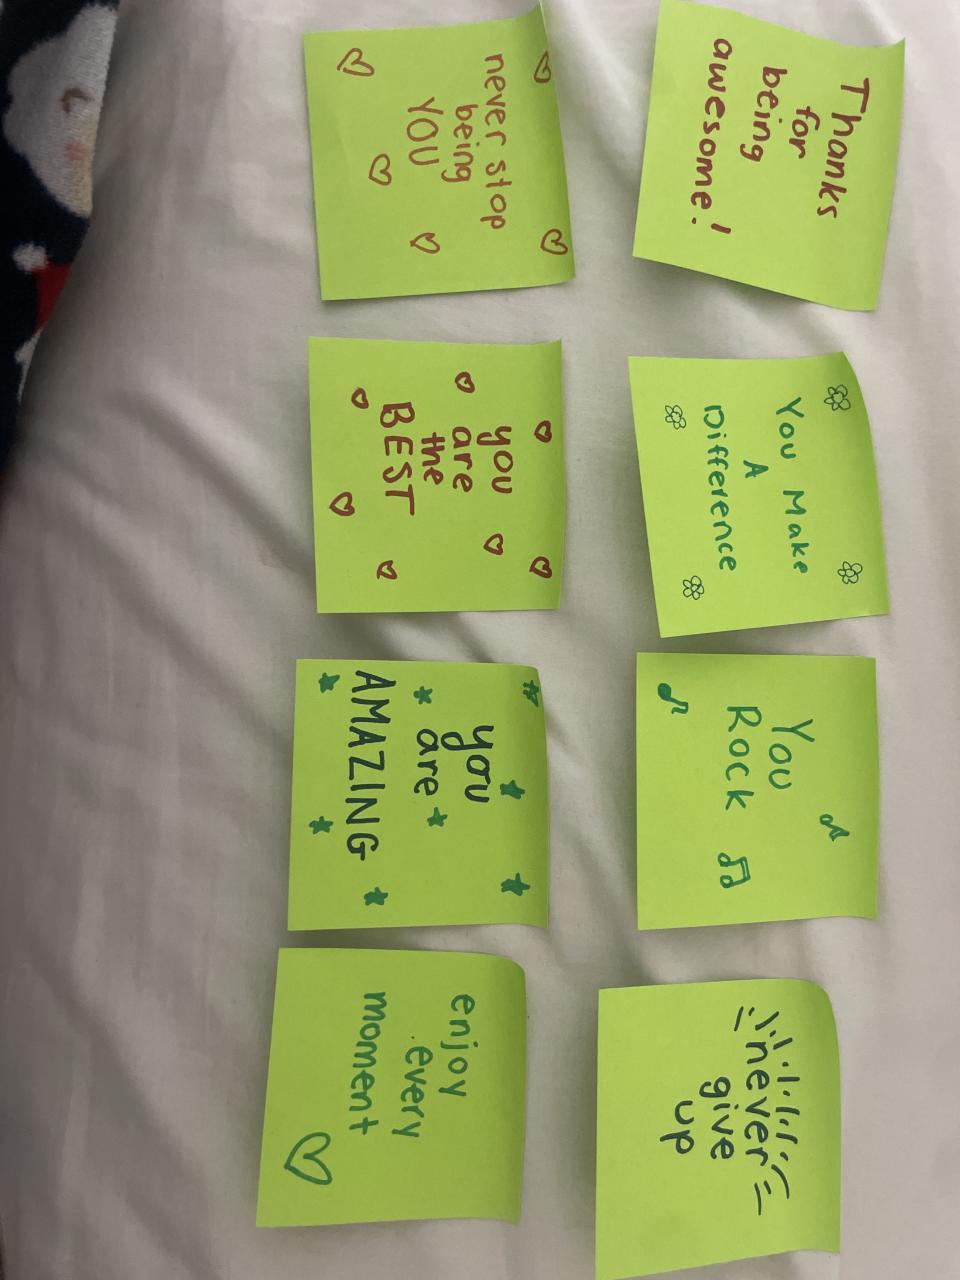 Thanks
for
being
awesome!
You Make
A
Difference
You
Rock
never
give
up
never stop
being
YOU
you
are
the
BEST
you
are
AMAZING
enjoy
every
moment